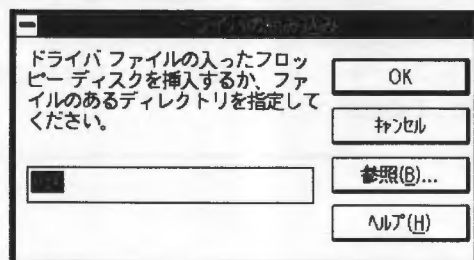 ドライバ ファイルの入ったフロッ
ピー ディスクを挿入するか、ファ
イルのあるディレクトリを指定して
ください。
OK
キャンセル
参照(B)...
ヘルプ(H)